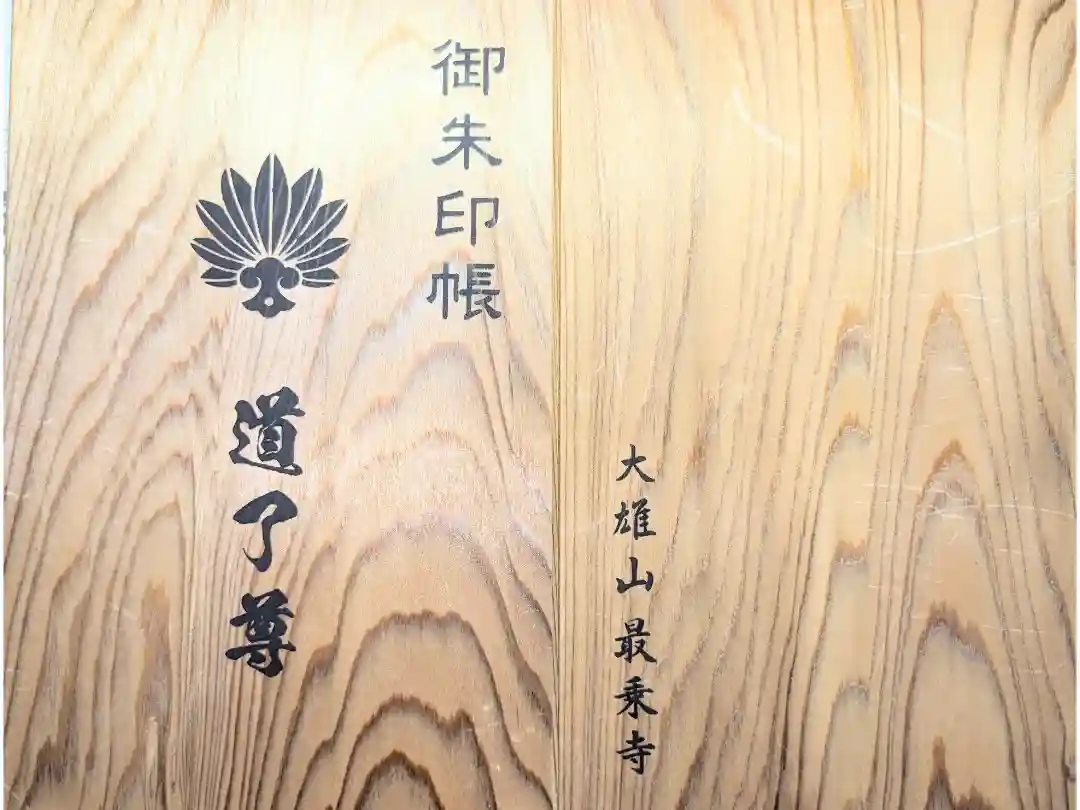 御朱印帳
道了尊
大雄山最乗寺